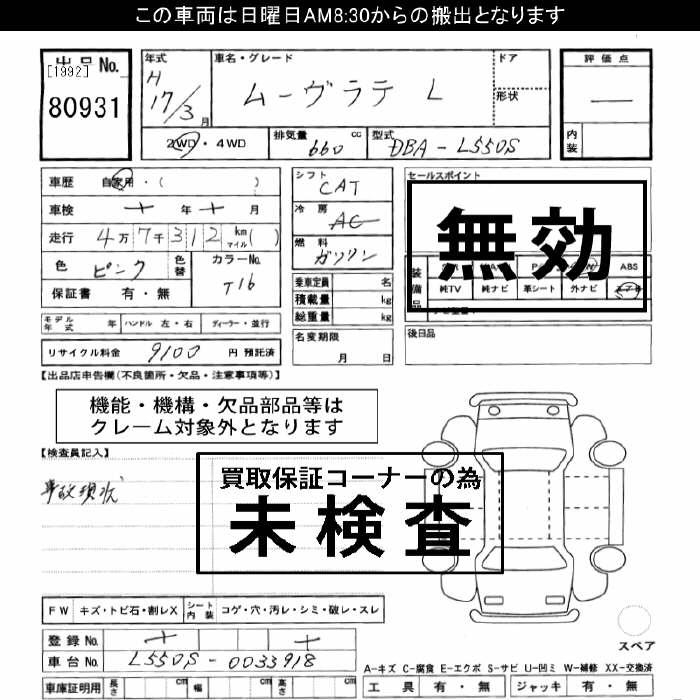 この車両は日曜日AM8:30からの搬出となります
出品 No.
[1992]
80931
年式
H
17/3月
車名・グレード
ムーヴラテ L
ドア
形状
評価点
—
内装
2WD・4WD
排気量 cc
660
型式
DBA-L550S
車歴 自家用・( )
車検 年 月
走行 4万7千312 km マイル( )
色 ピンク 色替
カラーNo. T16
保証書 有・無
シフト
CAT
冷房
AC
燃料
ガソリン
乗車定員 名
積載量 kg
総重量 kg
セールスポイント
無効
装備品
ABS
純TV 純ナビ 革シート 外ナビ
モデル年式 年 ハンドル 左・右 ディーラー・並行
リサイクル料金 9100 円 預託済
名変期限
月 日
後日品
【出品店申告欄(不良箇所・欠品・注意事項等)】
機能・機構・欠品部品等は
クレーム対象外となります
【検査員記入】
事故現状
買取保証コーナーの為
未検査
FW キズ・トビ石・割レX シート内装 コゲ・穴・汚レ・シミ・破レ・スレ
登録No.
車台No. L550S-0033918
車庫証明用 長さ cm 幅 cm 高さ cm
スペア
A-キズ C-腐食 E-エクボ S-サビ U-凹ミ W-補修 XX-交換済
工具 有・無 ジャッキ 有・無